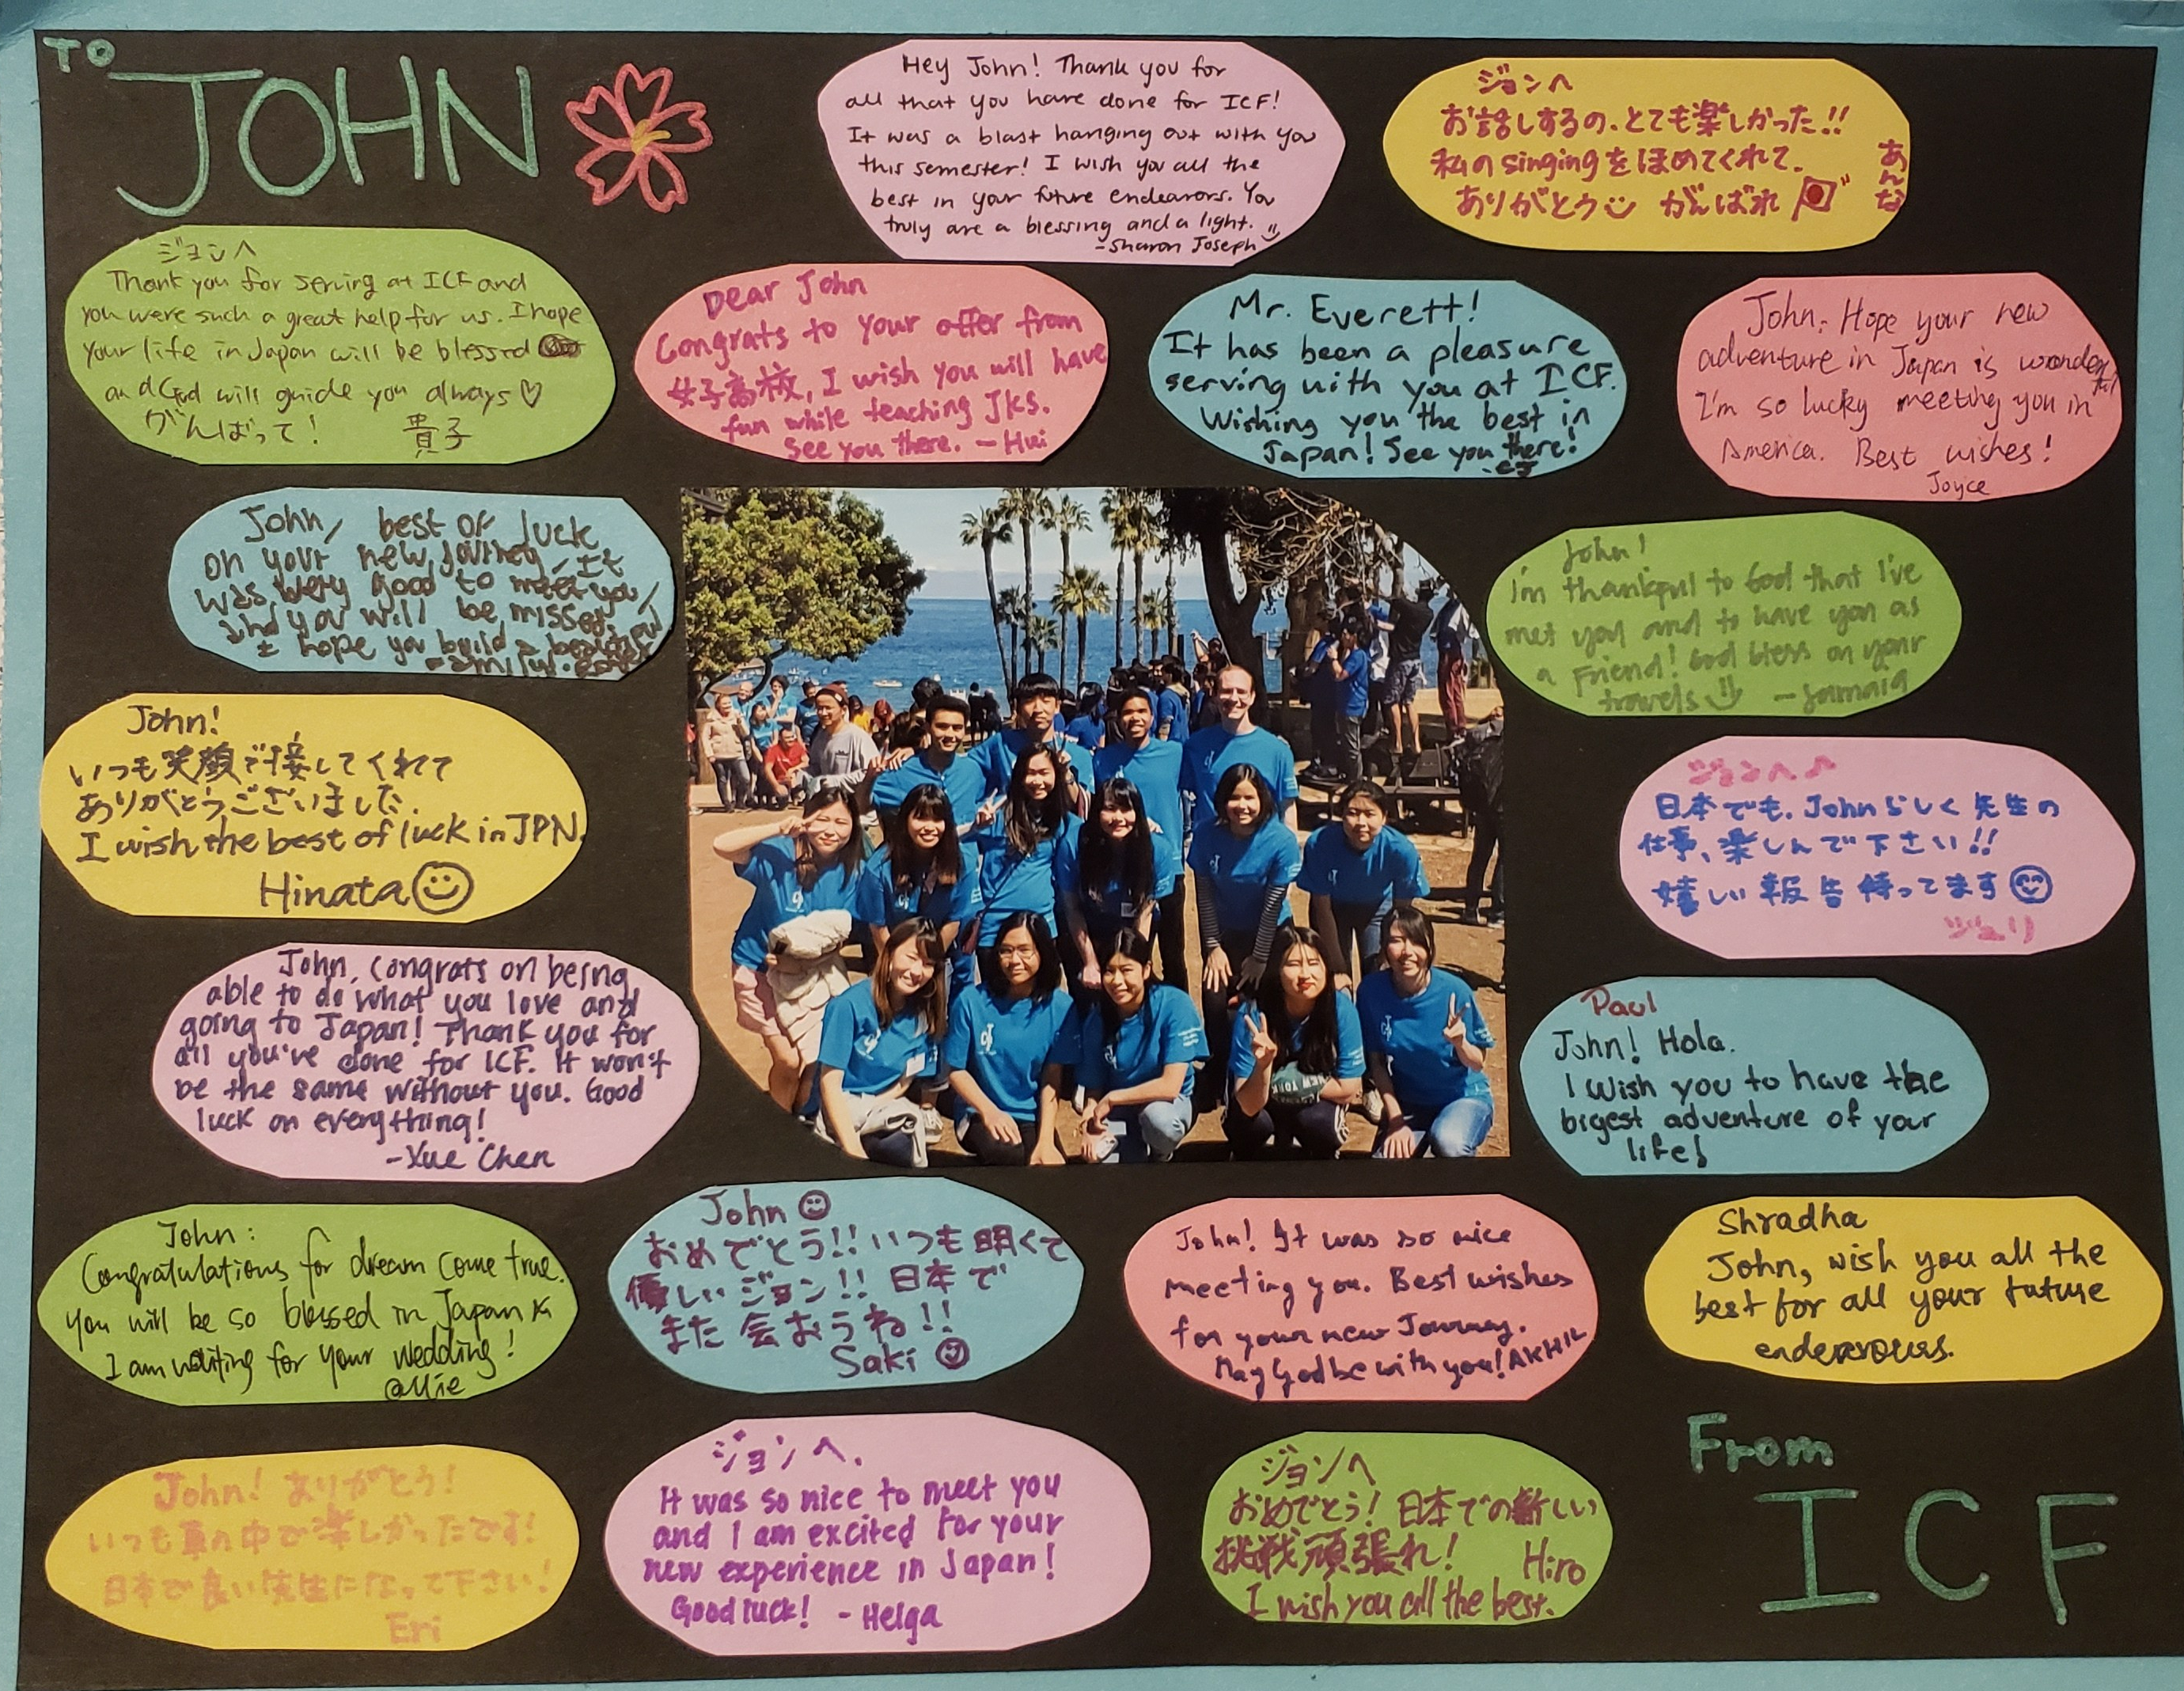 TO
JOHN
Hey John! Thank you for
all that you have done for ICF!
It was a blast hanging out with you
this semester! I wish you all the
best in your future endeavors. You
truly are a blessing and a light.
-Sharon Joseph
ジョンへ
お話しするの、とても楽しかった!!
私のsingingをほめてくれて、
ありがとう がんばれ
あんな
ジョンへ
Thank you for serving at ICF and
you were such a great help for us. I hope
your life in Japan will be blessed
and God will guide you always♡
がんばって!
貴子
Dear John
Congrats to your offer from
女子高校, I wish you will have
fun while teaching JKs.
See you there. - Hui
Mr. Everett!
It has been a pleasure
serving with you at ICF.
Wishing you the best in
Japan! See you there!
-EJ
John, Hope your new
adventure in Japan is wonderful
I'm so lucky meeting you in
America. Best wishes!
Joyce
John, best of luck
on your new journey, It
was very good to meet you,
and you will be missed.
I hope you build a beautiful
family.
John!
I'm thankful to God that I've
met you and to have you as
a Friend! God bless on your
travels -Jamaia
John!
いつも笑顔で接してくれて
ありがとうございました.
I wish the best of luck in JPN.
Hinata
ジョンへ♪
日本でも、Johnらしく先生の
仕事、楽しんで下さい!!
嬉しい報告待ってます
ジュリ
John, congrats on being
able to do what you love and
going to Japan! Thank you for
all you've done for ICF. It won't
be the same without you. Good
luck on everything!
-Yue Chen
Paul
John! Hola.
I wish you to have the
bigest adventure of your
life!
NEW YORK
John:
Congratulations for dream come true.
you will be so blessed in Japan
I am waiting for your wedding!
@Mie
John
おめでとう!!いつも明くて
優しいジョン!! 日本で
また会おうね!!
Saki
John! It was so nice
meeting you. Best wishes
for your new Journey.
May God be with you! AKHIL
Shradha
John, wish you all the
best for all your future
endeavours.
John! ありがとう!
いつも車の中で楽しかったです!
日本で良い先生になって下さい!
Eri
ジョンへ.
It was so nice to meet you
and I am excited for your
new experience in Japan!
Good luck! - Helga
ジョンへ
おめでとう! 日本での新しい
挑戦頑張れ! Hiro
I wish you all the best.
From
ICF